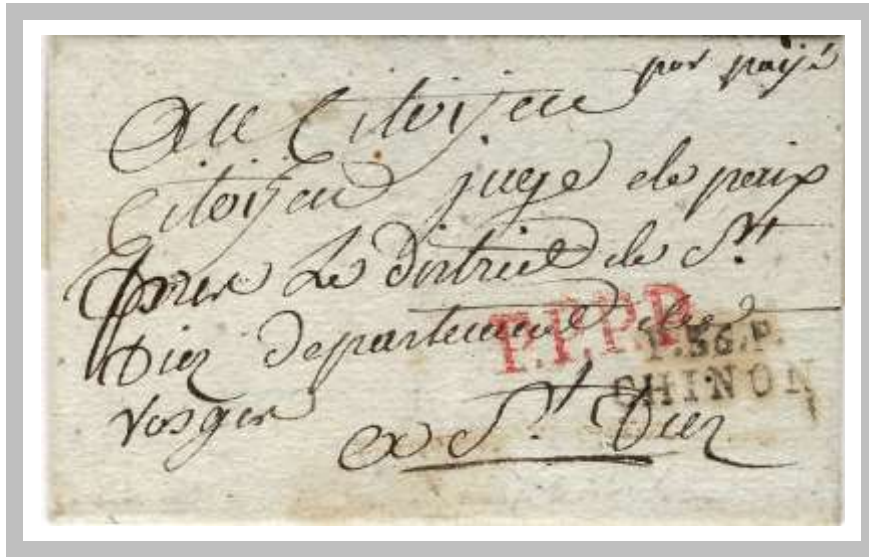 port payé
Au Citoyen
Citoyen juge de paix
pour Le District de St
Diez departement des
Vosges
P.P.P.P.
P.36.P.
CHINON
a St Diez